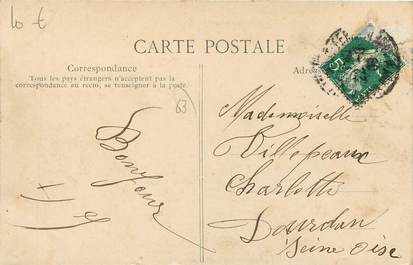 10 €
CARTE POSTALE
Correspondance
Tous les pays étrangers n'acceptent pas la
correspondance au recto, se renseigner à la poste.
63
Bonjour
Mademoiselle
Villepeaux
Charlotte
Dourdan
Seine Oise